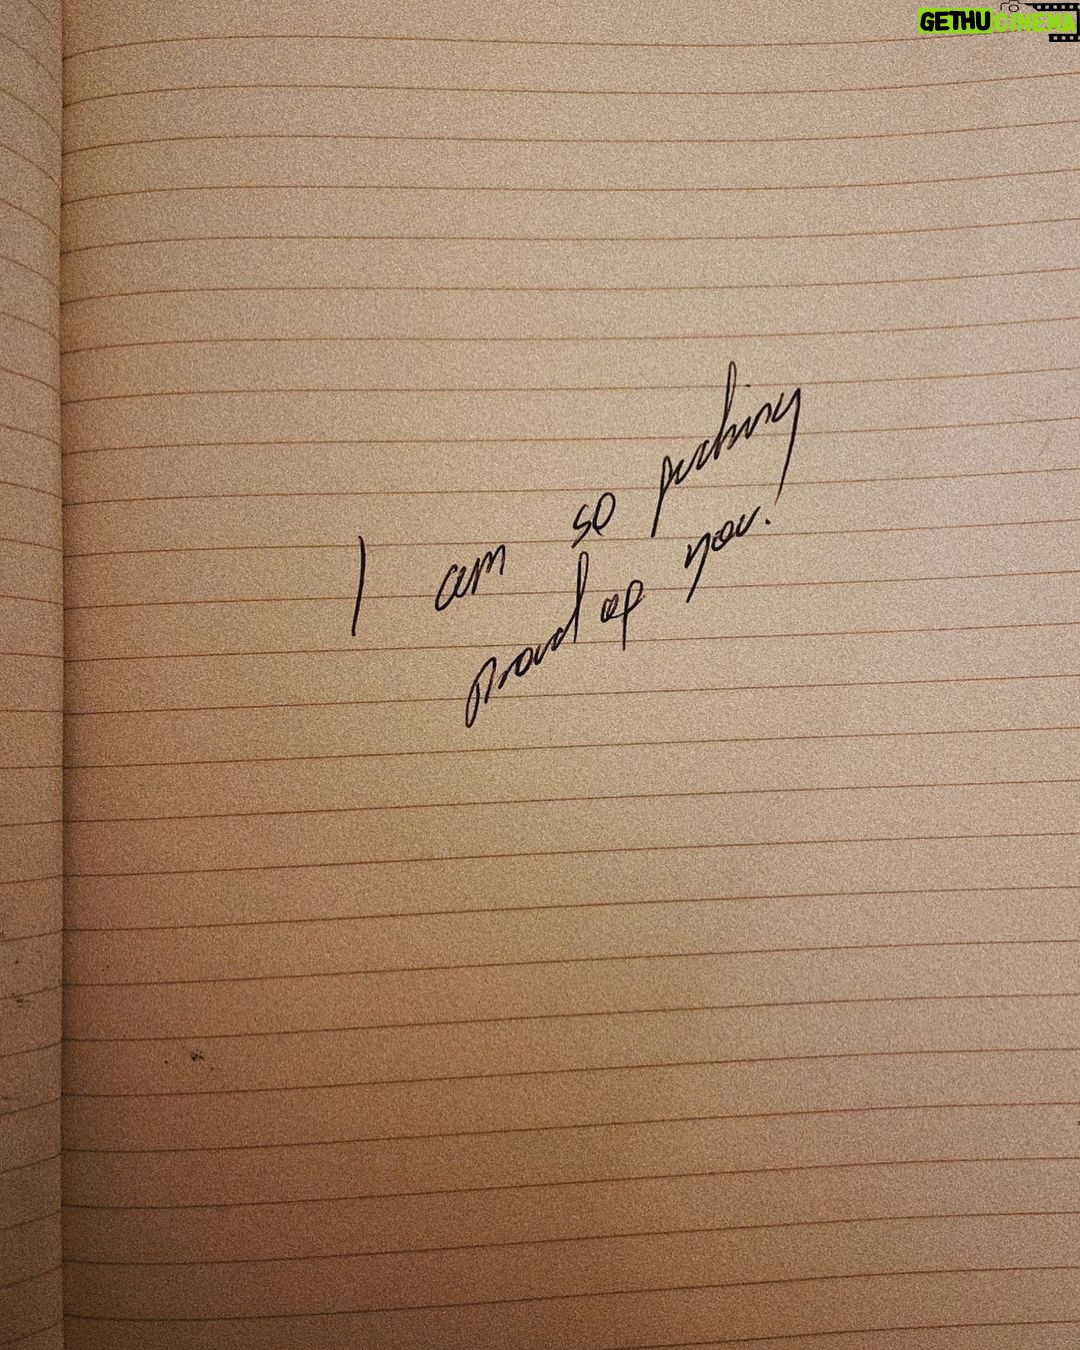 GETHUCINEMA
I am so fucking
proud of you.